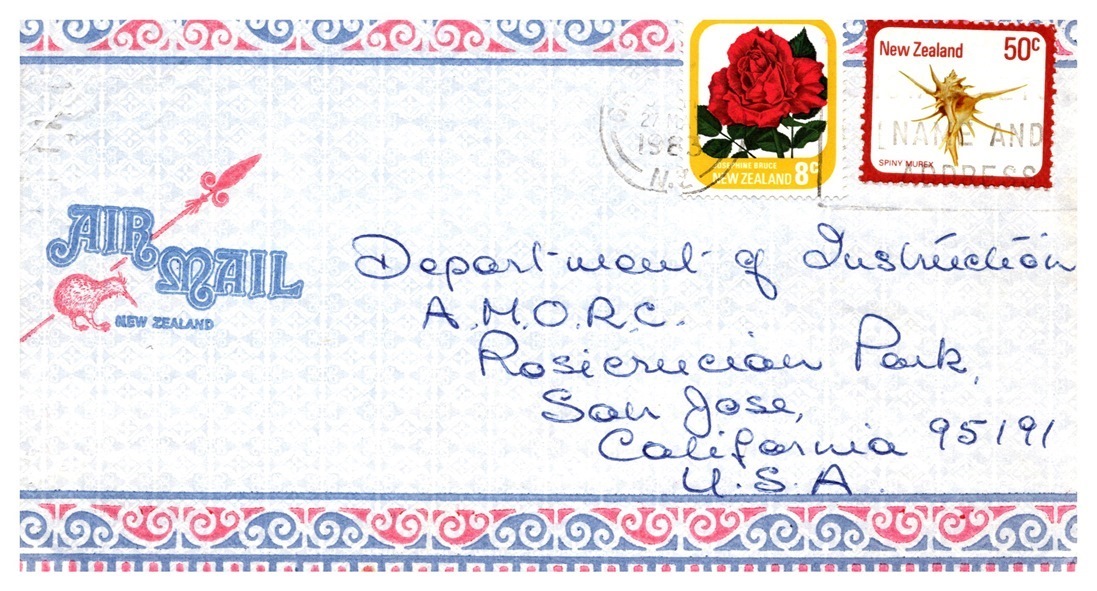 New Zealand 50c
SPINY MUREX
JOSEPHINE BRUCE
NEW ZEALAND 8c
1983
N.Z
NAME AND
ADDRESS
AIR
MAIL
NEW ZEALAND
Department of Instruction
A.M.O.R.C.
Rosicrucian Park,
San Jose,
California 95191
U.S.A.